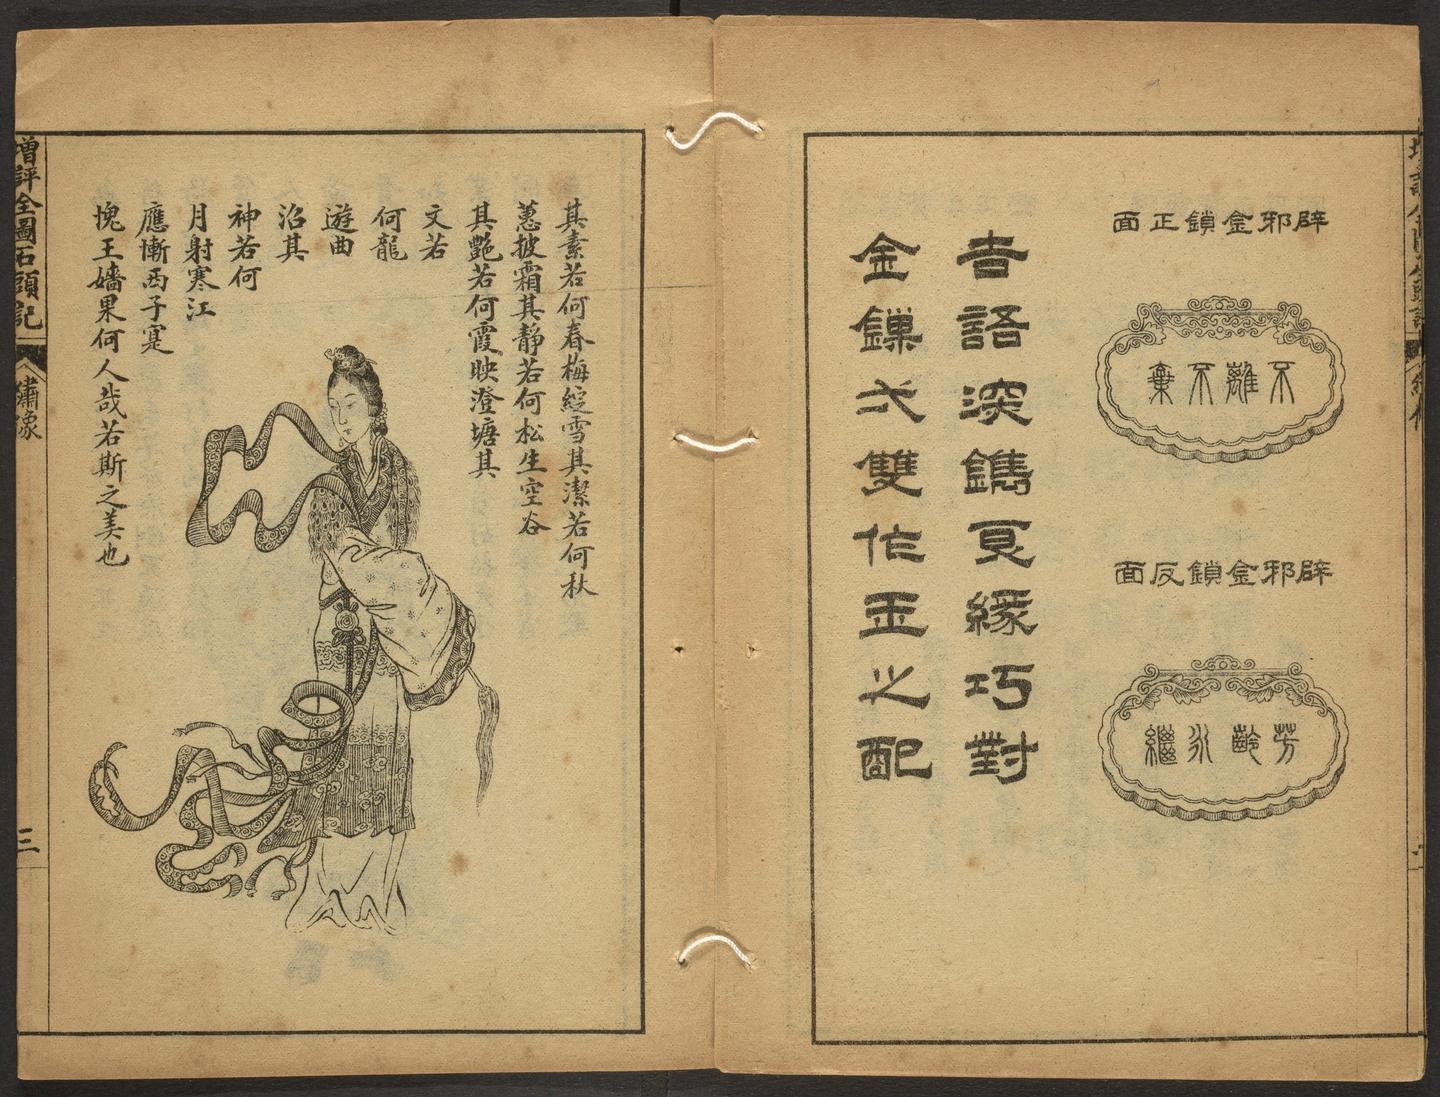 辟邪金鎖正面
不離不棄
辟邪金鎖反面
芳齡永繼
吉語深鐫良緣巧對
金鏁弌雙作玉之配
其素若何春梅綻雪其潔若何秋
蕙披霜其靜若何松生空谷
其艷若何霞映澄塘其
文若
何龍
遊曲
沼其
神若何
月射寒江
應慚西子寔
愧王嬙果何人哉若斯之美也
增評全圖石頭記
繡像
三